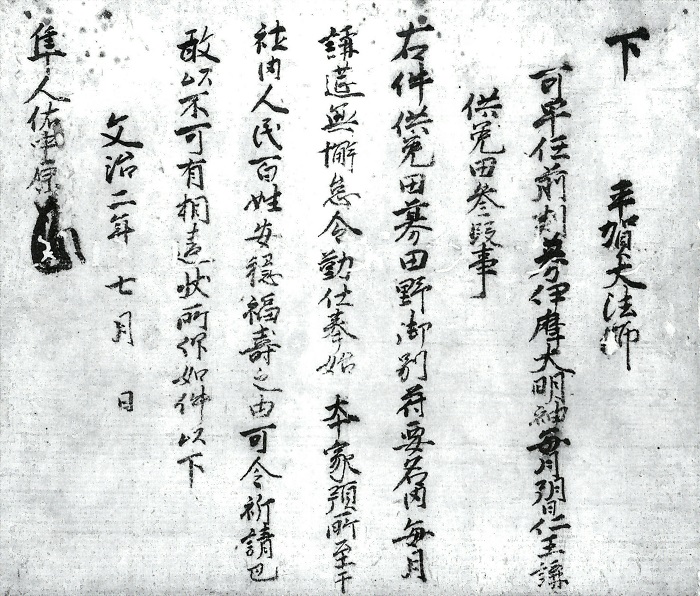 下 丰賀大法師
可早任前判募伊摩大明神毎月朔日仁王講
供免田参段事
右件供免田募田野御別符要名内毎月
講莚無懈怠令勤仕奉始 本家預所至于
社内人民百姓安穏福寿之由可令祈請也
敢以不可有相違状所仰如件以下
文治二年 七月 日
隼人佑中原